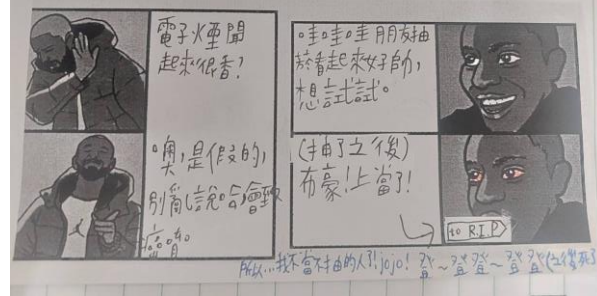 電子煙聞
起來很香？
噢，是假的，
別亂說哈，會致
癌喲
哇哇哇朋友抽
菸看起來好帥，
想試試。
(抽了之後)
布豪！上當了！
to R.I.P
所以…我不當不抽的人了！jojo！登~登登~登登(之後死了